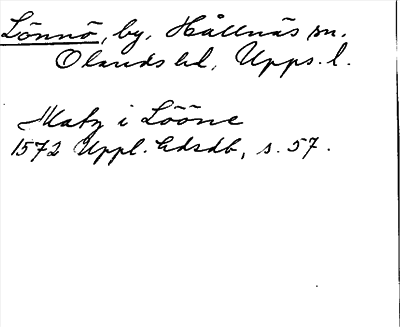 Lönnö, by, Hållnäs sn.
Olands hd, Upps. l.
Matz i Lööne
1572 Uppl. hdsdb, s. 57.